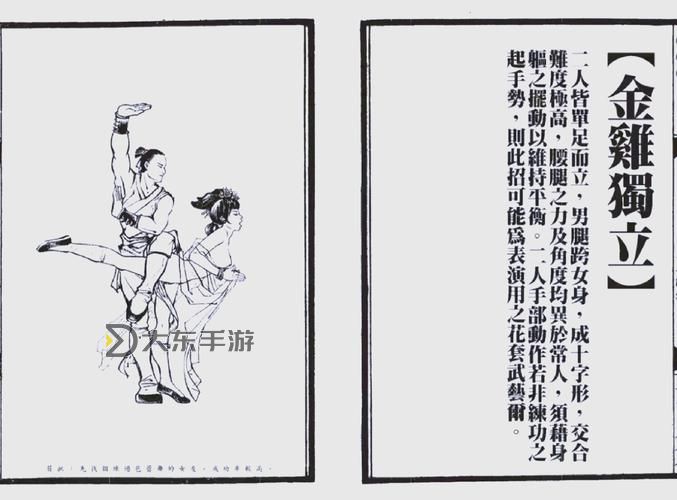 【金雞獨立】
二人皆單足而立，男腿跨女身，成十字形，交合
難度極高，腰腿之力及角度均異於常人，須藉身
軀之擺動以維持平衡。二人手部動作若非練功之
起手勢，則此招可能為表演用之花套武藝爾。
大东手游